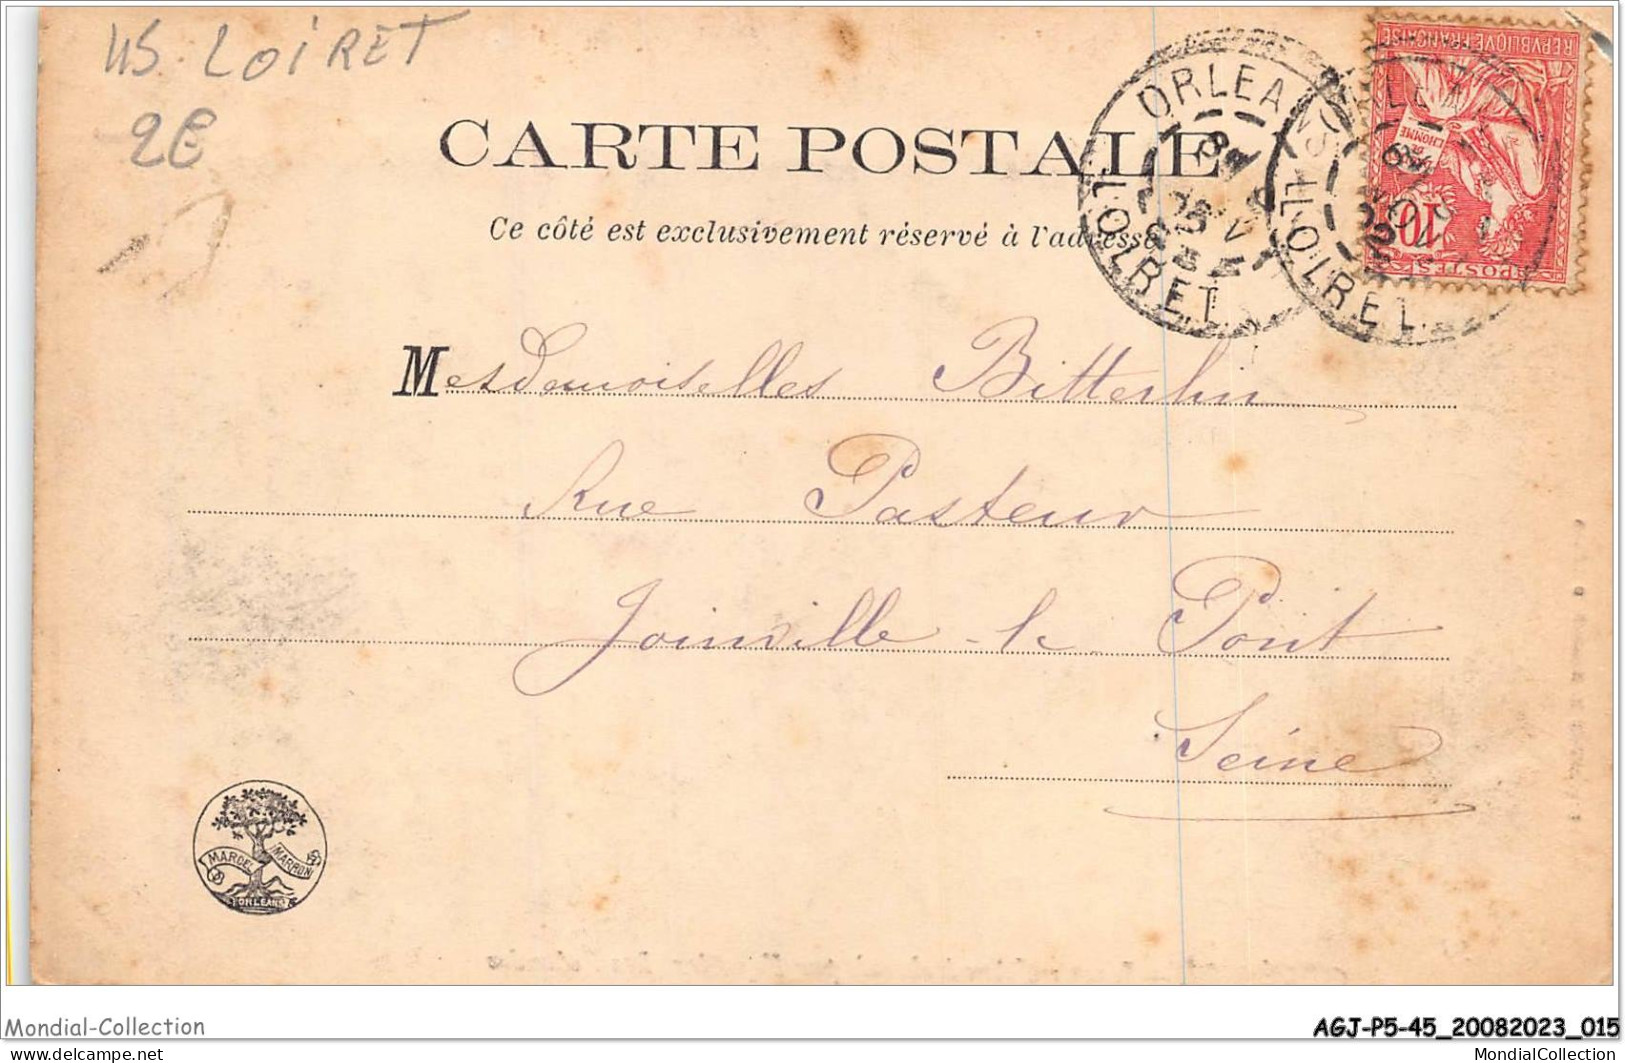 45 LOIRET
2€
CARTE POSTALE
Ce côté est exclusivement réservé à l'adresse
ORLEANS
LOIRET
ORLEANS
LOIRET
REPVBLIQVE FRANÇAISE
DROITS DE L'HOMME
10
POSTES
Mesdemoiselles Bitterlin
Rue Pasteur
Joinville-le-Pont
Seine
MARCEL MARRON
ORLEANS
Mondial-Collection
AGJ-P5-45_20082023_015
www.delcampe.net
MondialCollection